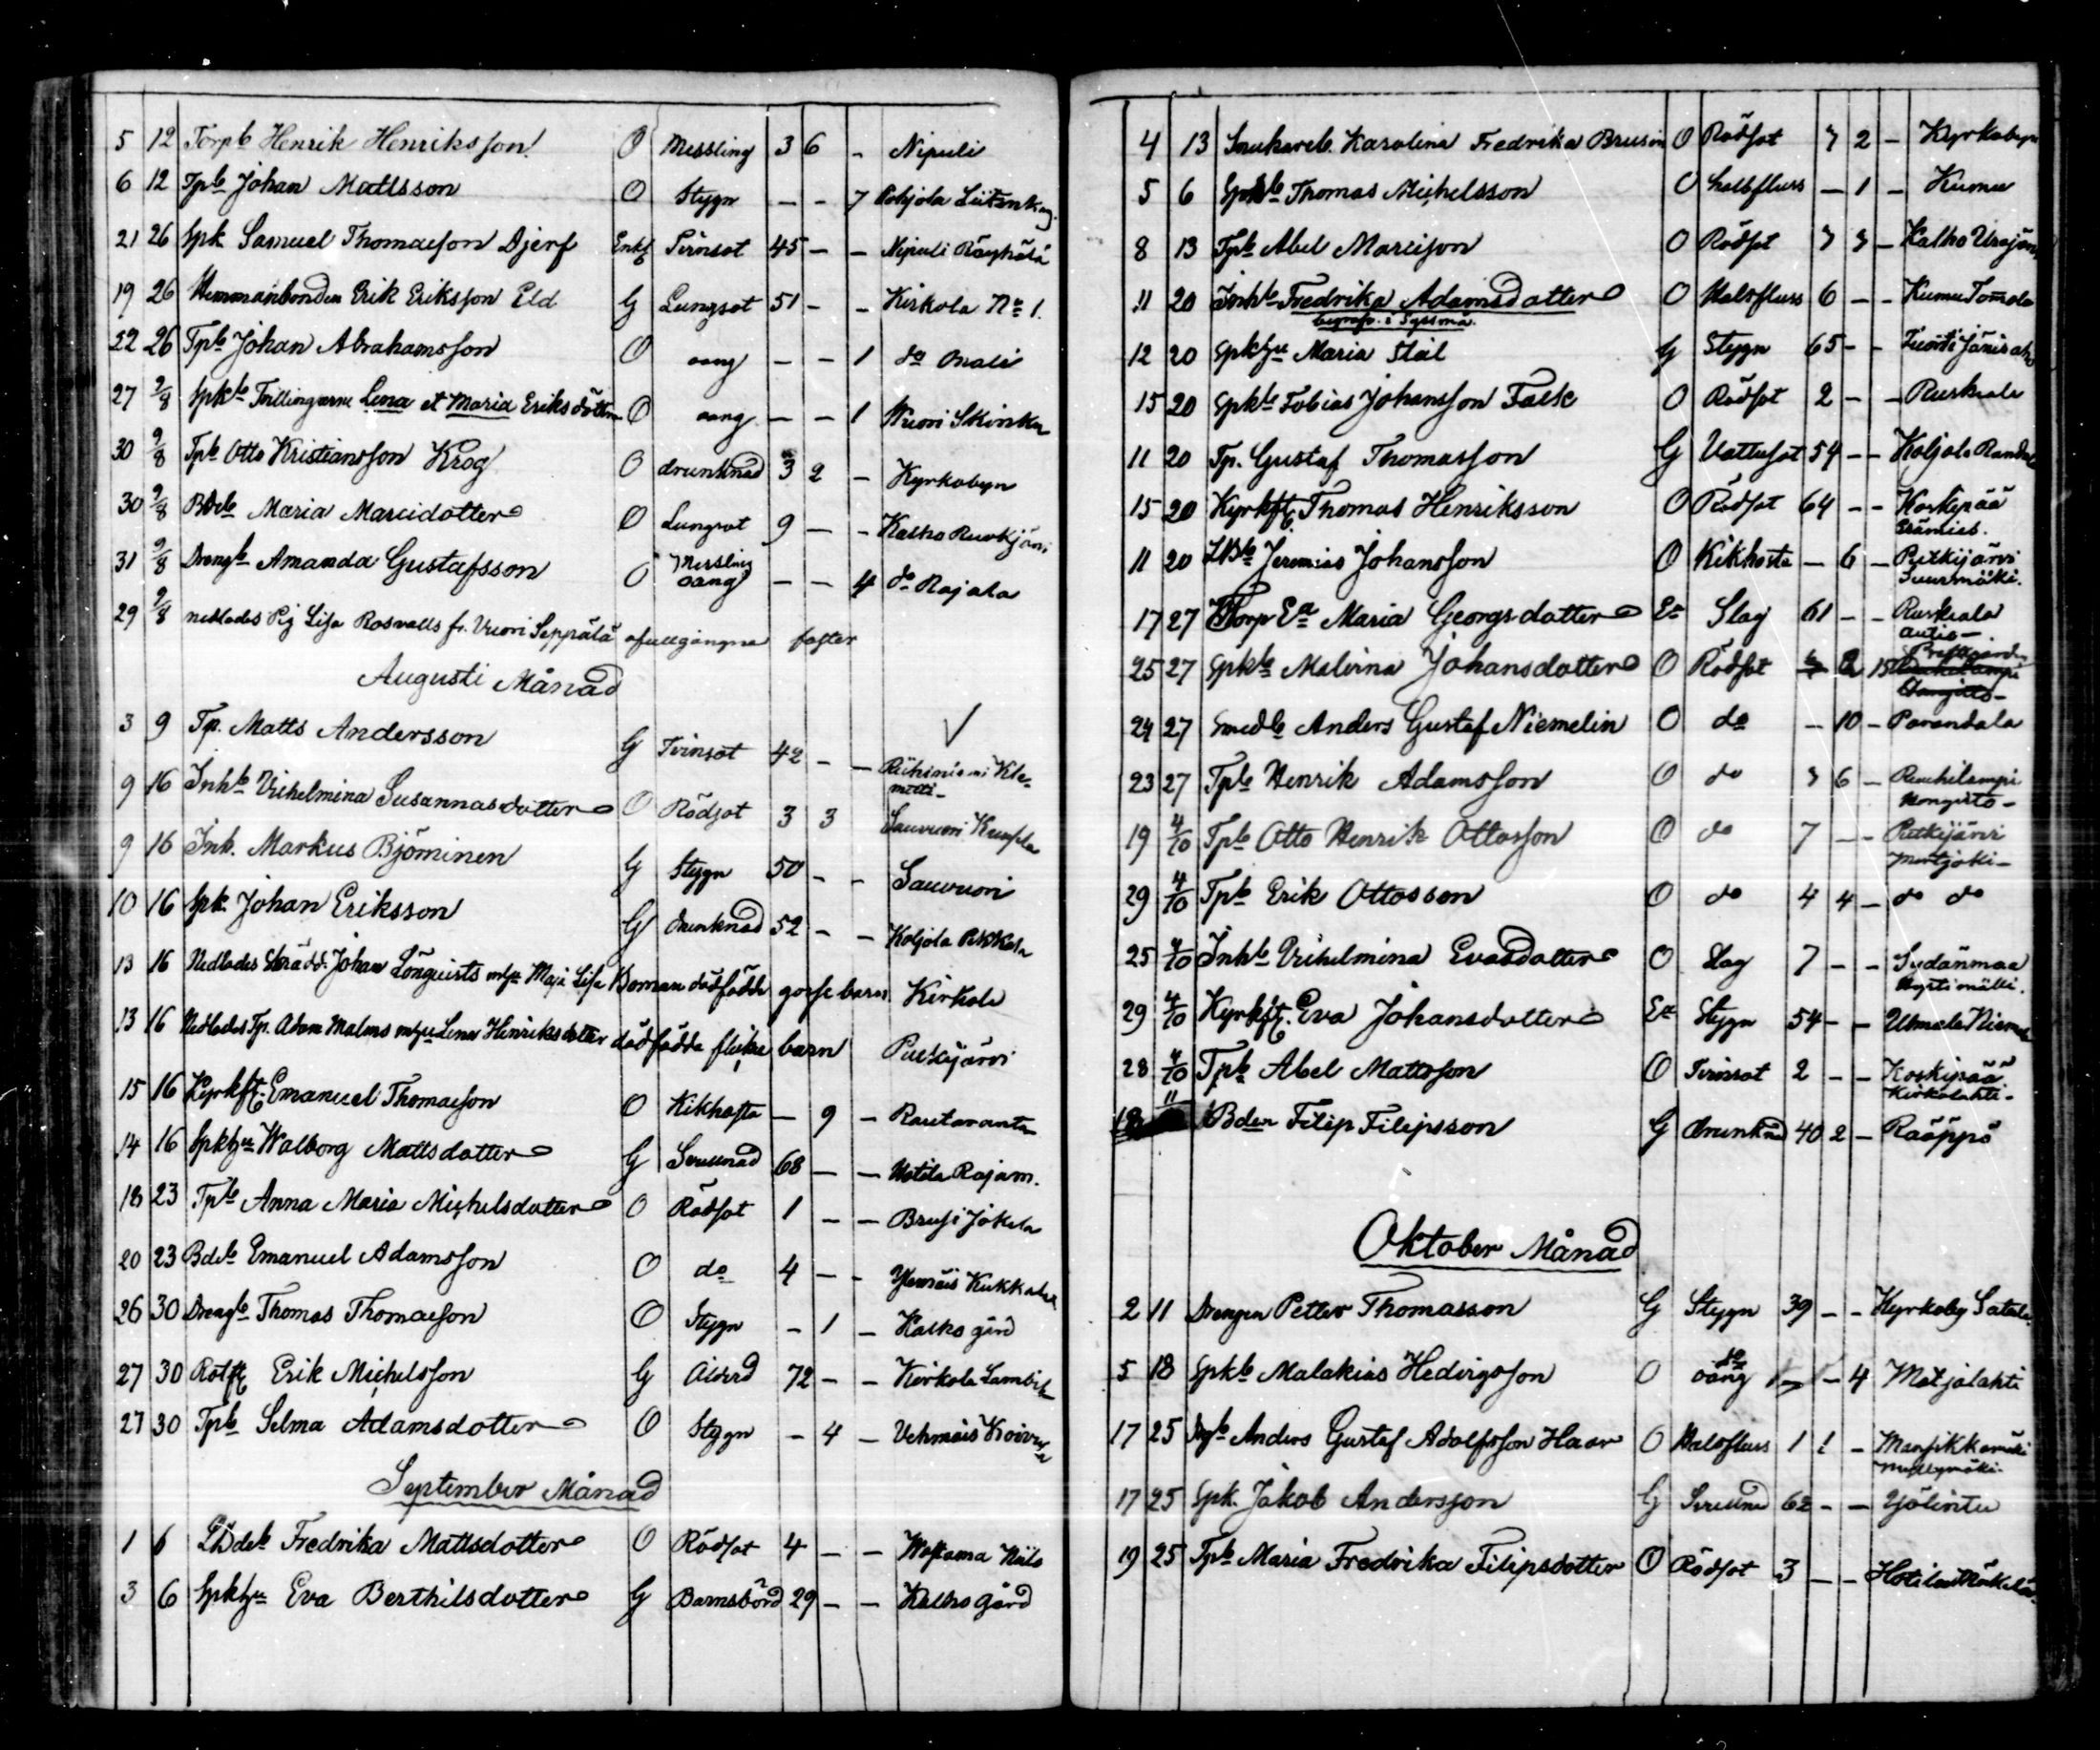 5 12 Torpb Henrik Henriksson O Messling 3 6 - Nipuli
6 12 Tpb Johan Mattsson O Stygn - - 7 Pohjola
21 26 Spk Samuel Thomasson Djerf Enkl Tvinsot 45 - - Nipuli Räyhälä
19 26 Hemmansbonden Erik Eriksson Eld G Lungsot 51 - - Kirkola No 1.
22 26 Tpb Johan Abrahamsson O oang - - 1 do
27 2/8 Spkb Tvillingarne Lena et Maria Eriksdöttrar O oang - - 1 Wuori Skinka
30 9/8 Tpb Otto Kristiansson Krog O drunknad 3 2 - Kyrkobyn
30 9/8 Bdeb Maria Marcidotter O Lungsot 9 - - Kalho
31 9/8 Drengb Amanda Gustafsson O Messling oang - - 4 do Rajala
29 9/8 nedlades Pig Lisa Rosvalls fr. Vuori Seppälä ofullgångna foster
Augusti Månad
3 9 Tp. Matts Andersson G Tvinsot 42 - -
9 16 Inhb Vilhelmina Susannasdotter O Rödsot 3 3 Sauvuori
9 16 Inh. Markus Björninen G Stygn 50 - - Sauvuori
10 16 Spk. Johan Eriksson G drunknad 52 - - Koljola Pekkola
13 16 Nedlades Skrädd. Johan Lönquists Maja Lisa Boman dödfödde gosse barn Kirkola
13 16 Nedlades Tp. Adam Malms Lena Henriksdotter dödfödda flicke barn Putkijärvi
15 16 Kyrkft. Emanuel Thomasson O Kikhosta - 9 - Rautavanta
14 16 Spkhu Walborg Mattsdotter G Svullnad 68 - - Uotila Rajam.
18 23 Tpb Anna Maria Michelsdotter O Rödsot 1 - - Brusi Jokela
20 23 Bdeb Emanuel Adamsson O do 4 - - Kukkola
26 30 Drengb Thomas Thomasson O Stygn - 1 - Kalho gård
27 30 Rotft Erik Michelsson G Ålderd 72 - - Kirkola
27 30 Tpb Selma Adamsdotter O Stygn - 4 - Vehmais
September Månad
1 6 LBdeb Fredrika Mattsdotter O Rödsot 4 - -
3 6 Spkhu Eva Berthilsdotter G Barnsbörd 29 - - Kalho gård
4 13 Karolina Fredrika Brusin O Rödsot 3 2 - Kyrkobyn
5 6 Spkb Thomas Michelsson O halsfluss - 1 - Kumu
8 13 Tpb Abel Marcisson O Rödsot 3 3 - Kalho
11 20 Inhb Fredrika Adamsdotter O Halsfluss 6 - - Kumu
begrafv. i Sysmä.
12 20 Spkhu Maria Stål G Stygn 65 - -
15 20 Spkb Tobias Johansson Falk O Rödsot 2 - - Ruskiala
11 20 Tp. Gustaf Thomasson G Vattusot 54 - - Koljola
15 20 Kyrkft. Thomas Henriksson O Rödsot 64 - - Koskipää
11 20 LBb Jeremias Johansson O Kikhosta - 6 - Putkijärvi
Suurmäki.
17 27 Torp Ea Maria Georgsdotter Ea Slag 61 - - Ruskiala
Autio -
25 27 Spkb Malvina Johansdotter O Rödsot 2 15 Prestgården
24 27 Smedb Anders Gustaf Niemelin O do - 10 - Parandala
23 27 Tpb Henrik Adamsson O do 3 6 - Ruuhilampi
19 4/10 Tpb Otto Henrik Ottosson O do 7 - - Putkijärvi
29 4/10 Tpb Erik Ottosson O do 4 4 - do do
25 4/10 Inhb Vilhelmina Evasdotter O Slag 7 - - Sydänmaa
29 4/10 Kyrkft. Eva Johansdotter Ea Stygn 54 - -
28 4/10 Tpb Abel Mattsson O Tvinsot 2 - - Koskipää
Kirkolahti -
18 11 Bden Filip Filipsson G drunknad 40 2 - Rääppö
Oktober Månad
2 11 Drengen Petter Thomasson G Stygn 39 - - Kyrkoby
5 18 Spkb Malakias Hedvigsson O oang - - 4 Matjalahti
17 25 Drgb Anders Gustaf Adolfsson Haar O Halsfluss 1 1 -
17 25 Spk. Jakob Andersson G Svullnd 62 - -
19 25 Tpb Maria Fredrika Filipsdotter O Rödsot 3 - - Hotila